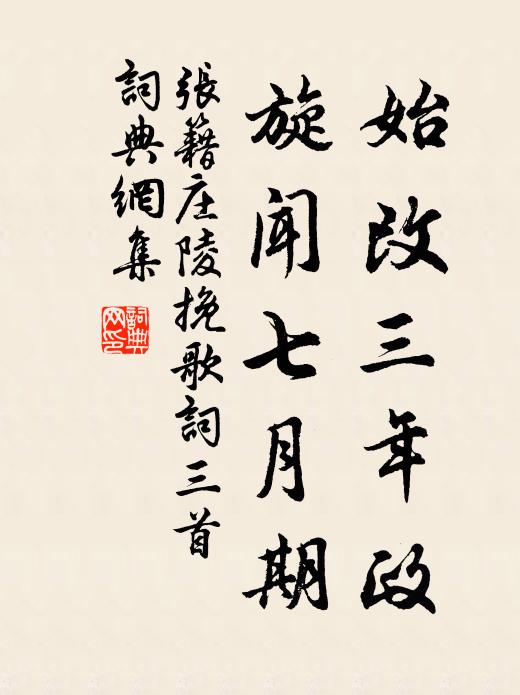 始改三年政
旋聞七月期
張籍庄陵挽歌詞三首
詞典網集
詞典网印